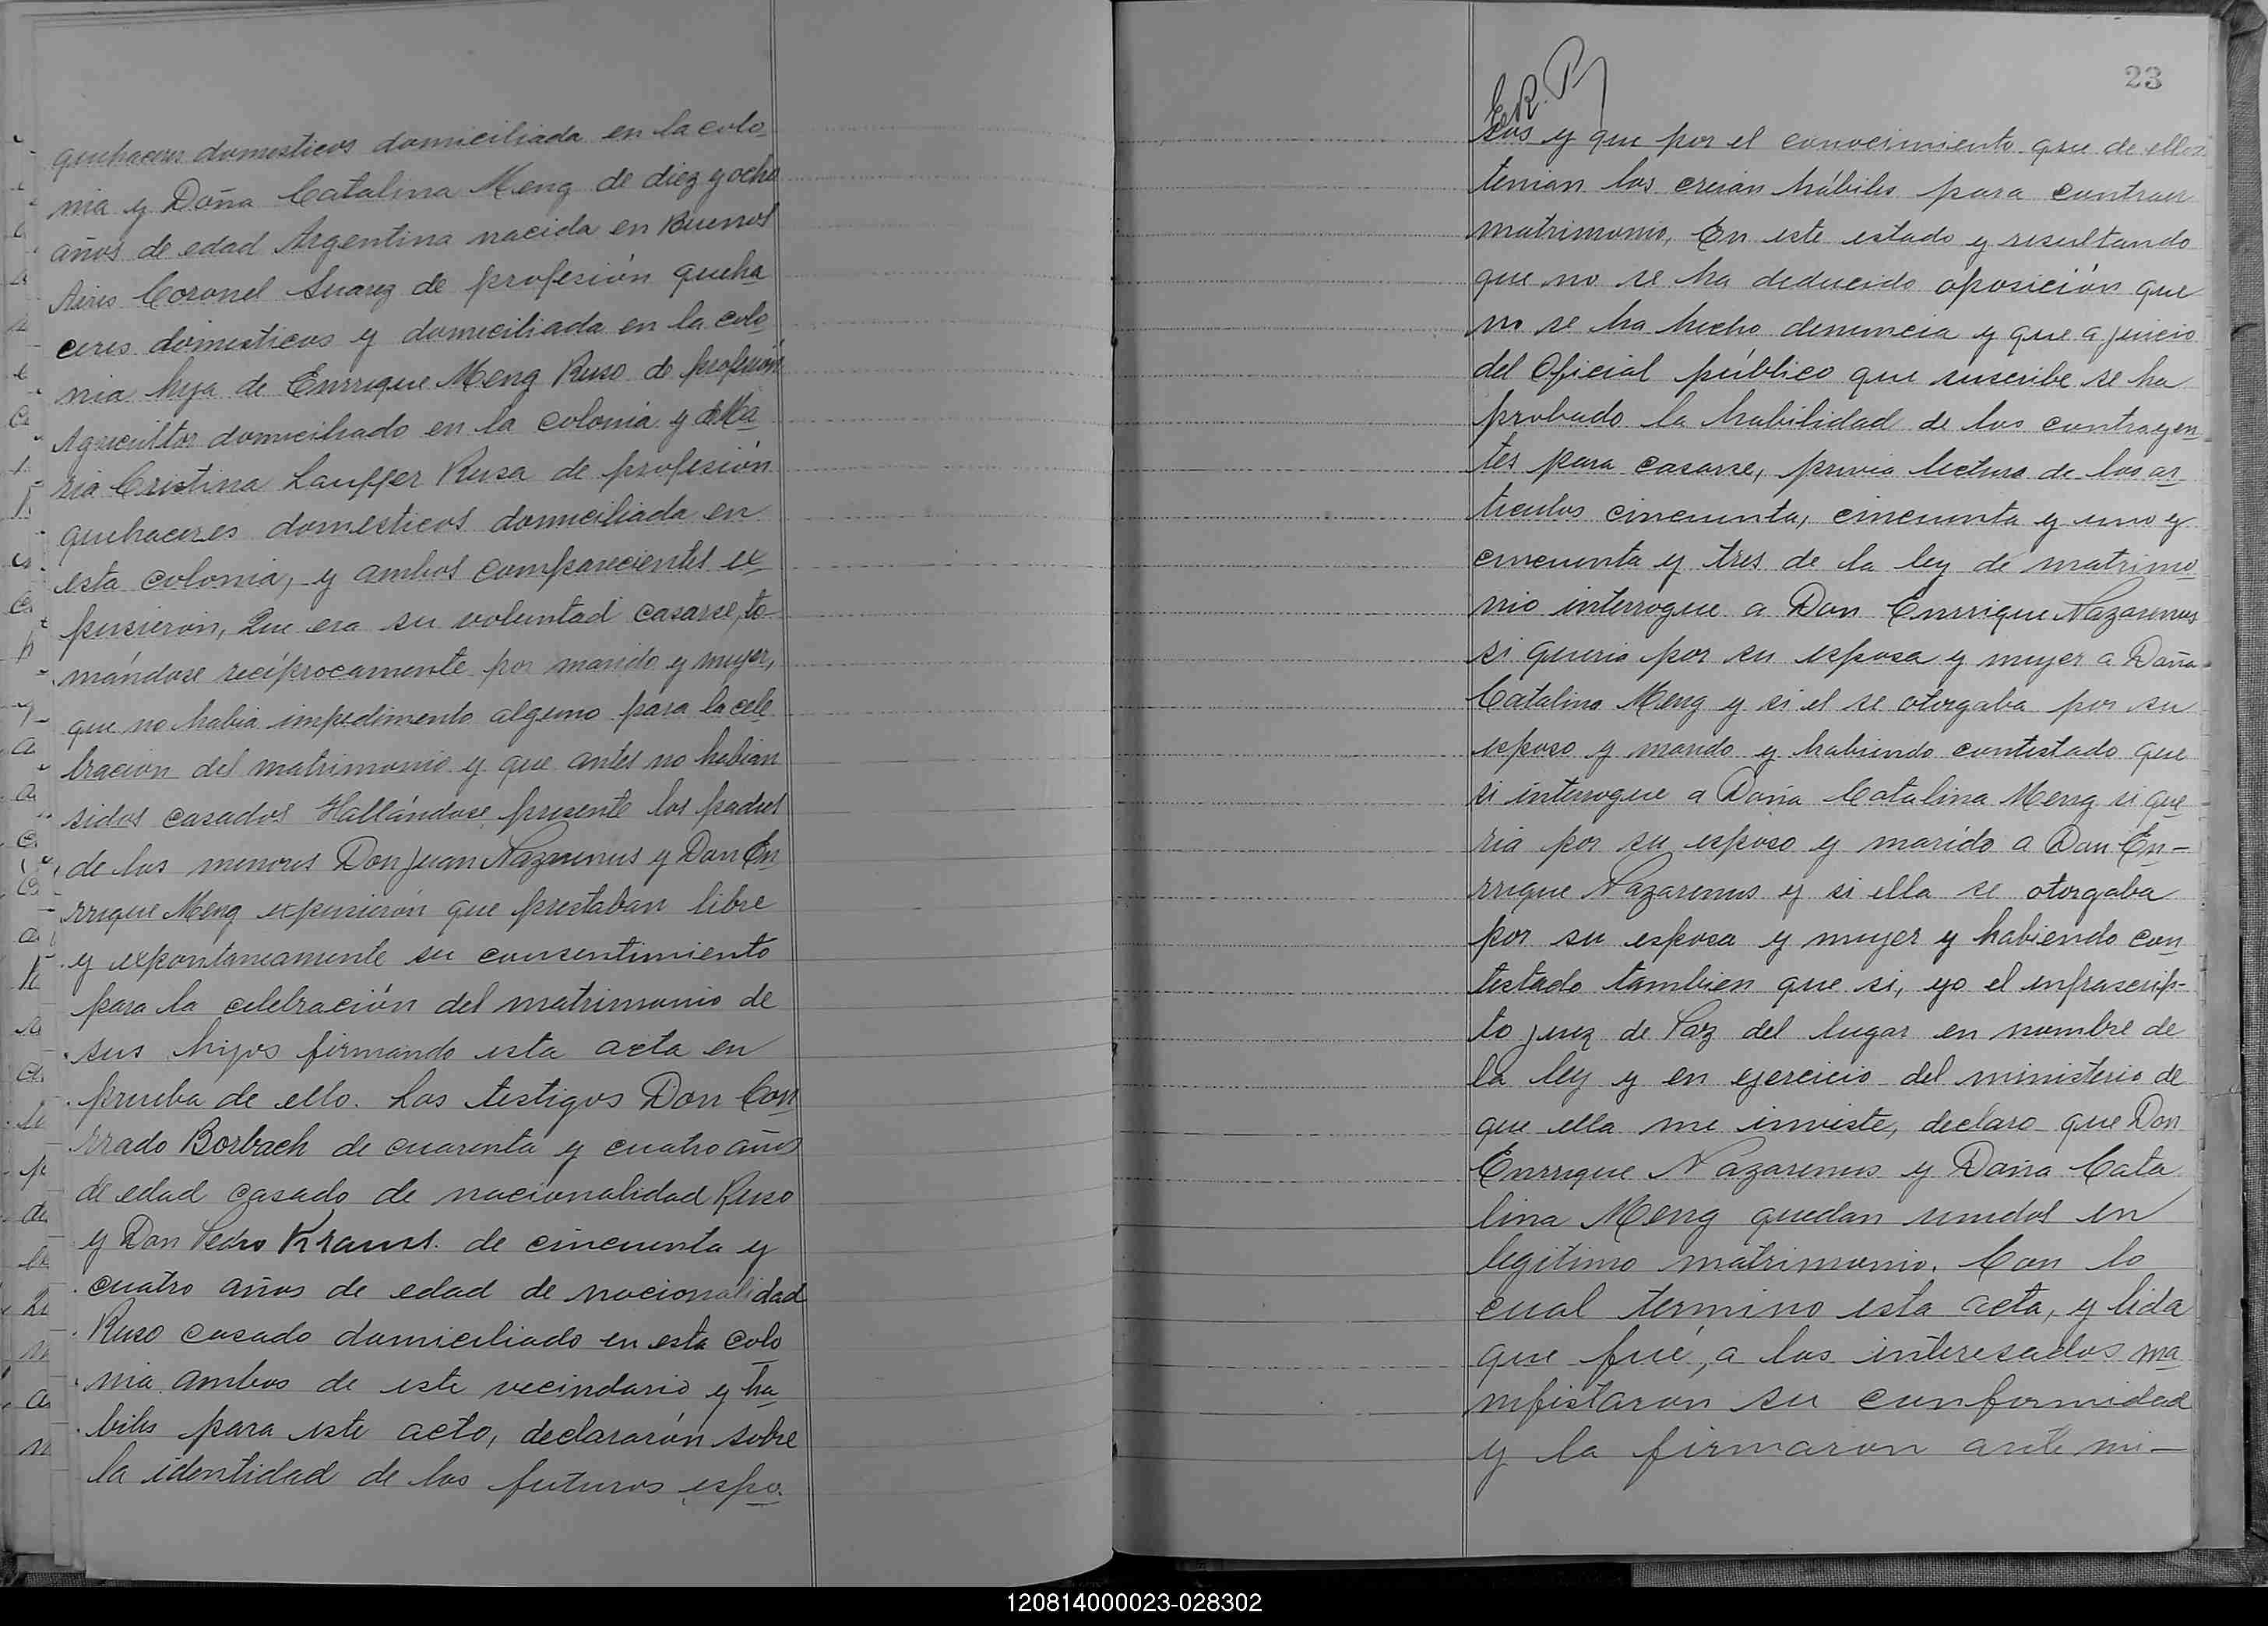 quehaceres domesticos domiciliada en la colo
nia y Doña Catalina Meng de diez y ocho
años de edad Argentina nacida en Buenos
Aires Coronel Suarez de profesión queha
ceres domesticos y domiciliada en la colo
nia hija de Enrrique Meng Ruso de profesión
Agricultor domiciliado en la colonia y de Ma
ria Cristina Lauffer Rusa de profesión
quehaceres domesticos domiciliada en
esta colonia, y ambos comparecientes ex
pusieron, Que era su voluntad casarse, to-
mándose recíprocamente por marido y mujer,
que no habia impedimento alguno para la cele
bracion del matrimonio y que antes no habian
sidos casados Hallándose presente los padres
de los menores Don Juan Nazarenus y Don En
rrique Meng expusierón que prestaban libre
y expontaneamente su consentimiento
para la celebración del matrimonio de
sus hijos firmando esta acta en
prueba de ello. Los testigos Don Con
rrado Borbach de cuarenta y cuatro años
de edad casado de nacionalidad Ruso
y Don Pedro Kraus. de cincuenta y
cuatro años de edad de nacionalidad
Ruso casado domiciliado en esta colo
nia ambos de este vecindario y ha
biles para este acto, declararón sobre
la identidad de los futuros espo
23
E.R.P
sos y que por el conocimiento que de ellos
tenian los creian hábiles para contraer
matrimonio, En este estado y resultando
que no se ha deducido oposición que
no se ha hecho denuncia y que a juicio
del Oficial público que suscribe se ha
probado la habilidad de los contrayen
tes para casarse, previa lectura de los ar
ticulos cincuenta, cincuenta y uno y
cincuenta y tres de la ley de matrimo
nio interrogue a Don Enrrique Nazarenus
si queria por su esposa y mujer a Doña
Catalina Meng y si el se otorgaba por su
esposo y marido y habiendo contestado que
si interrogue a Doña Catalina Meng si que
ria por su esposo y marido a Don En-
rrique Nazarenus y si ella se otorgaba
por su esposa y mujer y habiendo con
testado tambien que si, yo el infrascrip-
to juez de Paz del lugar en nombre de
la ley y en ejercicio del ministerio de
que ella me inviste, declaro que Don
Enrrique Nazarenus y Doña Cata
lina Meng quedan unidos en
legitimo matrimonio. Con lo
cual termino esta acta, y lida
que fué, a los interesados ma
nifistaron su conformidad
y la firmaron ante mi—
120814000023-028302